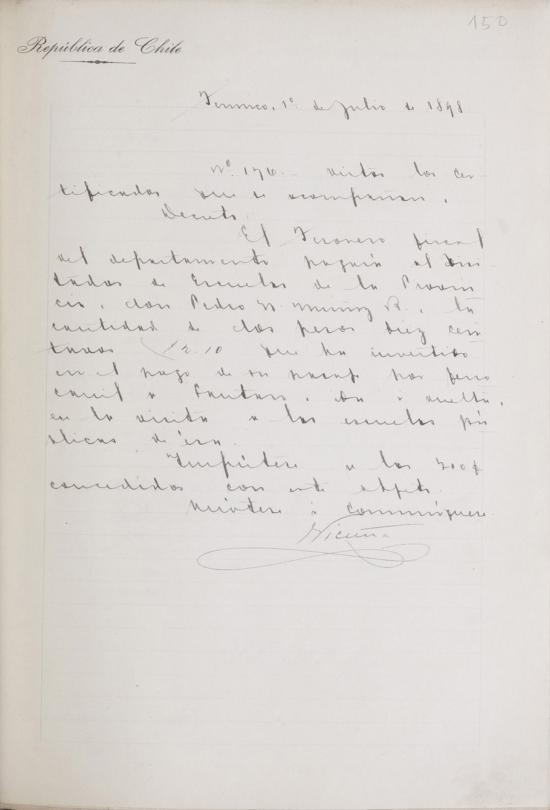 150
República de Chile
Temuco, 1º de Julio de 1898
Nº 170.- vistos los cer-
tificados que se acompañan,
Decreto:
El Tesorero fiscal
del departamento pagará al Visi-
tador de Escuelas de la Provin-
cia, don Pedro N. Muñoz R., la
cantidad de dos pesos diez cen-
tavos $2.10 que ha invertido
en el pago de su pasaje por ferro
carril a Lautaro, ida i vuelta,
en la visita a las escuelas pú
blicas de ésa.
Impútese a los 300$
concedidos con este objeto.
Anótese i comuníquese
Vicuña